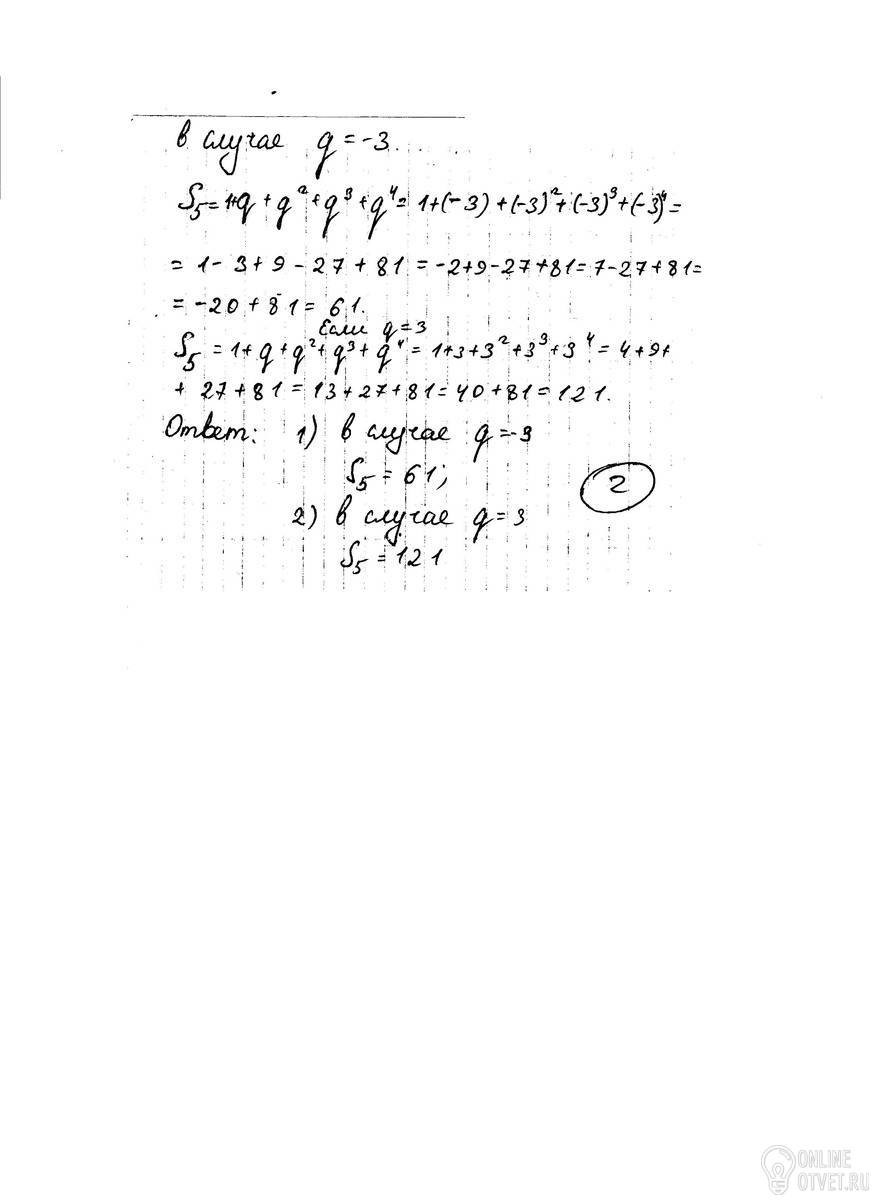 в случае q = -3.
S₅ = 1+q + q² + q³ + q⁴ = 1+(-3) + (-3)² + (-3)³ + (-3)⁴ =
= 1 - 3 + 9 - 27 + 81 = -2+9-27+81 = 7-27+81 =
= -20 + 81 = 61.
Если q = 3
S₅ = 1+ q + q² + q³ + q⁴ = 1+3+3²+3³+3⁴ = 4+9+
+ 27+81 = 13+27+81 = 40+81 = 121.
Ответ: 1) в случае q = -3
S₅ = 61;
2
2) в случае q = 3
S₅ = 121
ONLINE
OTVET.RU